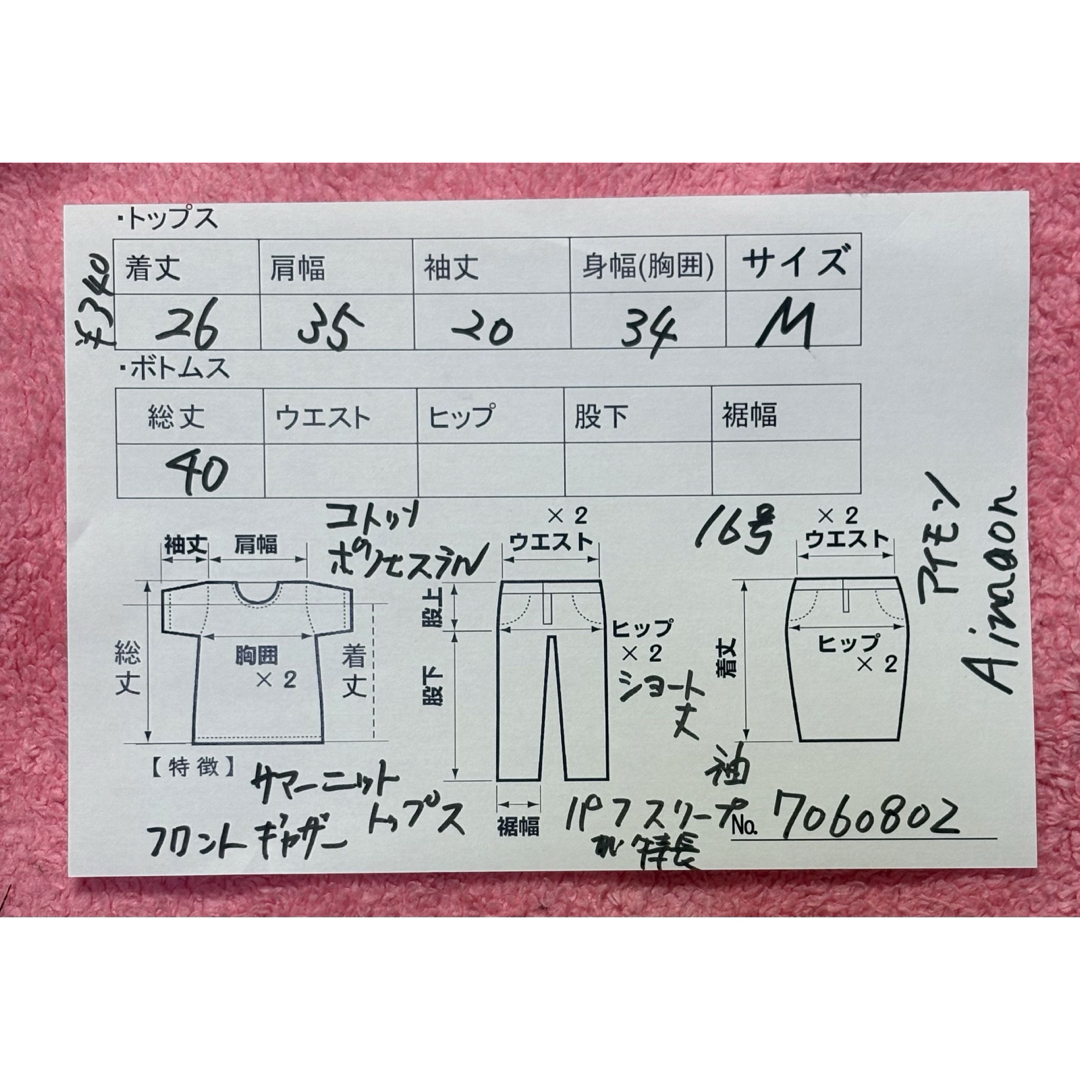 ・トップス
着丈 肩幅 袖丈 身幅(胸囲) サイズ
¥340
26 35 20 34 M
・ボトムス
総丈 ウエスト ヒップ 股下 裾幅
40
コットン
ポリエステル
16号
アイモン
Aimaon
袖丈 肩幅
総丈
胸囲
×2
着丈
×2
ウエスト
股上
股下
ヒップ
×2
裾幅
ショート
丈
×2
ウエスト
着丈
ヒップ
×2
【特徴】
サマーニット
トップス
フロントギャザー
袖
パフスリーブ
が特長
No. 7060802